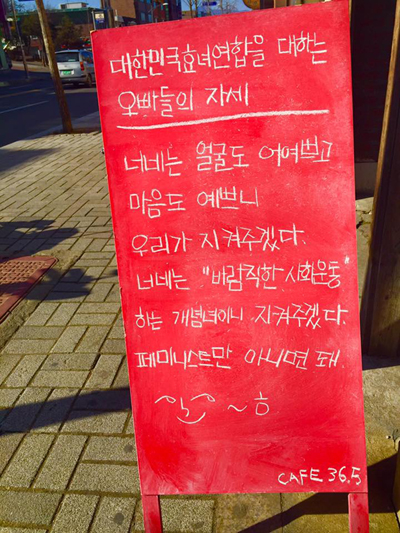 대한민국효녀연합을 대하는
오빠들의 자세
너네는 얼굴도 어여쁘고
마음도 예쁘니
우리가 지켜주겠다.
너네는 "바람직한 사회운동
하는 개념녀이니 지켜주겠다.
페미니스트만 아니면 돼.
~ㅎ
CAFE 36.5